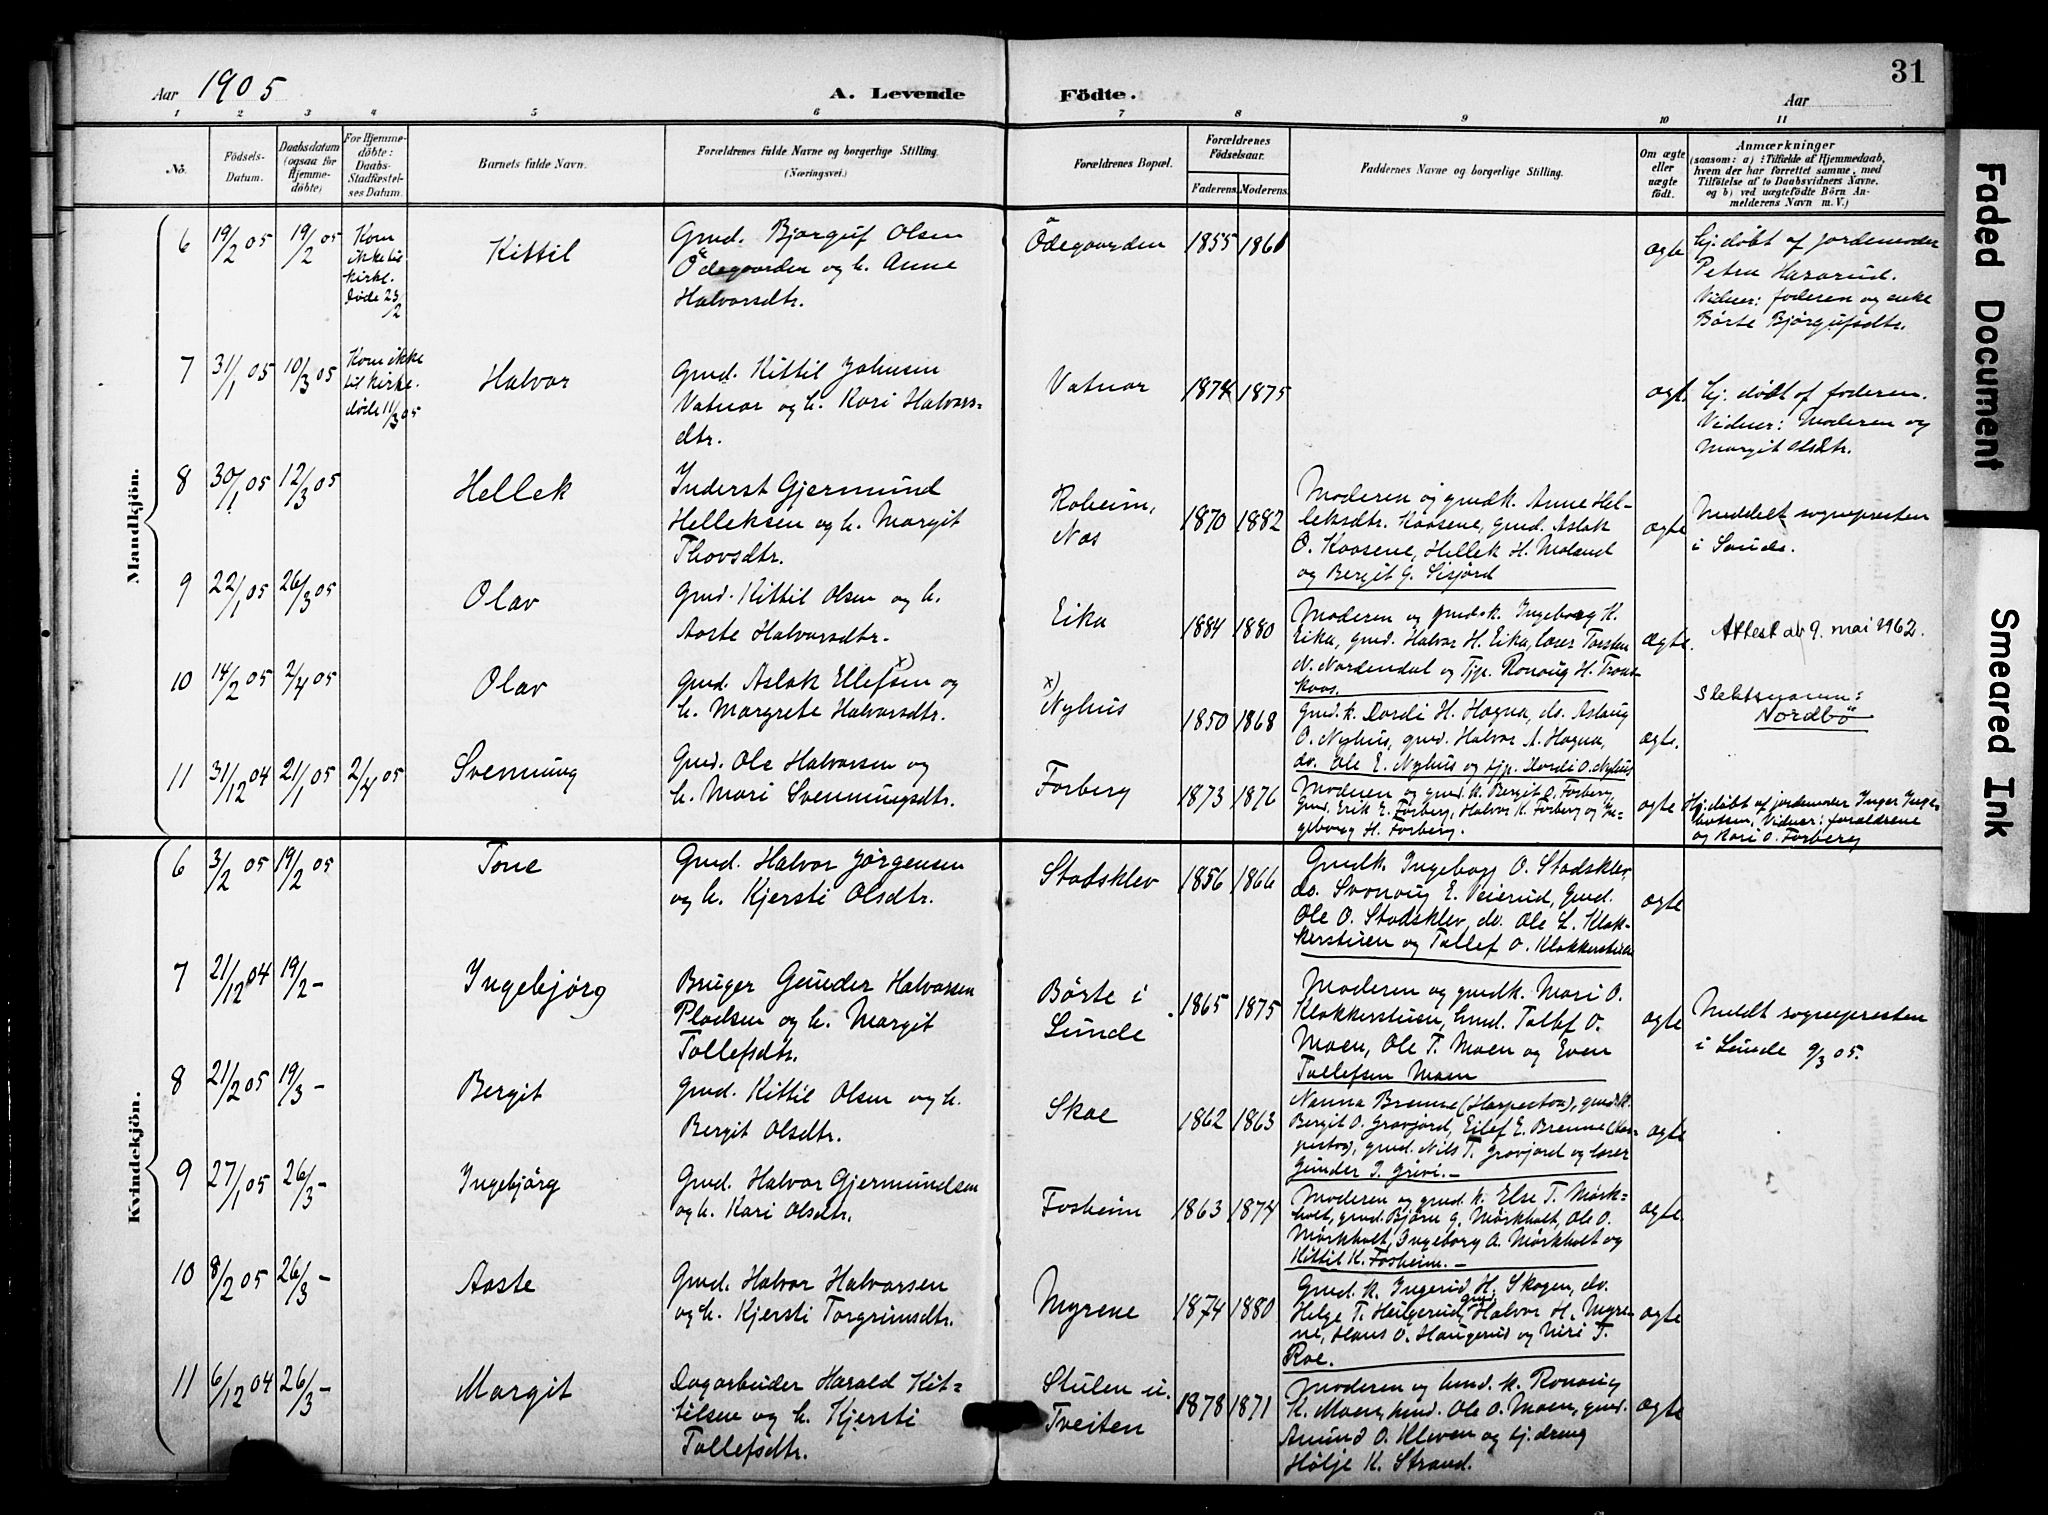 Aar 1905
A. Levende Födte.
Aar
31
1 2 3 4 5 6 7 8 9 10 11
No.
Födsels-Datum.
Daabsdatum (ogsaa for Hjemme-döbte)
For Hjemme-döbte: Daabs-Stadfæstel-ses Datum.
Barnets fulde Navn.
Forældrenes fulde Navne og borgerlige Stilling.
(Næringsvei.)
Forældrenes Bopæl.
Forældrenes Födselsaar.
Faderens. Moderens.
Faddernes Navne og borgerlige Stilling.
Om ægte eller uægte födt.
Anmærkninger
(saasom: a) Tilfælde af Hjemmedaab,
hvem der har forrettet samme, med
Tilföielse af to Daabsvidners Navne,
og b) ved uægtefödte Börn An-
melderens Navn m. V.)
Mandkjön.
6 19/2 05 19/2 05
Kom
ikke til
kirke.
døde 23/2
Kittil
Gmd. Bjørguf Olsen
Ödegaarden og h. Anne
Halvorsdtr.
Ödegaarden
1855 1861
ægte
hj. døbt af jordemoder
Petra Hasarud.
Vidner: faderen og enke
Børte Bjørgufsdtr.
7 31/1 05 10/3 05
Kom ikke
til kirke.
døde 11/3 05
Halvor
Gmd. Kittil Johnsen
Vatnar og h. Kari Halvors-
dtr.
Vatnar
1874 1875
ægt.
hj. døbt af faderen.
Vidner: Moderen og
Margit Olsdtr.
8 30/1 05 12/3 05
Hellek
Inderst Gjermund
Helleksen og h. Margit
Thovsdtr.
Roheim,
Næs
1870 1882
Moderen og gmdk. Anne Hel-
leksdtr. Kaasene, gmd. Aslak
O. Kaasene, Hellek H. Moland
og Bergit G. Sisjord
ægte
Meddelt sognepresten
i Sauds.
9 22/1 05 26/3 05
Olav
Gmd. Kittil Olsen og h.
Aaste Halvorsdtr.
Eika
1884 1880
Moderen og gmdsk. Ingeborg K.
Eika, gmd. Halvor H. Eika, læser Torsten
N. Nordendal og Tjp. Ronoug H.
ægte.
Attest ab 9. mai 1962.
10 14/2 05 2/4 05
Olav
Gmd. Aslak Ellefsen x) og
h. Margrete Halvorsdtr.
x)
Nyhus
1850 1868
Gmd. k. Dordi H. Hagna, do. Aslaug
O. Nyhus, gmd. Halvor A. Hagna,
do. Ole E. Nyhus og tjp. Dordi O. Nyhus
ægte.
Slektsnavn:
Nordbö
11 31/12 04 21/1 05 2/4 05
Svenning
Gmd. Ole Halvorsen og
h. Mari Svenningsdtr.
Forberg
1873 1876
Moderen og gmd. k. Bergit O. Forberg
Gmd. Erik E. Forberg, Halvor K. Forberg og In-
geborg H. Forberg.
ægte
Hj. døbt af jordemoder Inger Inge-
Vidner: forældrene
og Kari O. Forberg
Kvindekjön.
6 3/2 05 19/2 05
Tone
Gmd. Halvor Jørgensen
og h. Kjersti Olsdtr.
Stadsklev
1856 1866
Gmdk. Ingeborg O. Stadsklev,
do. Svonaug E. Veierud, Gmd.
Ole O. Stadsklev, do. Ole L. Klok-
kerstuen og Tollef O. Klokkerstuen
ægte
7 21/12 04 19/2 -
Ingebjørg
Bruger Gunder Halvorsen
Pladsen og h. Margit
Tollefsdtr.
Börte i
Lunde
1865 1875
Moderen og gmdk. Mari O.
Klokkerstuen, hmd. Tollef O.
Moen, Ole T. Moen og Even
Tollefsen Moen
ægte
Meldt sognepresten
i Lunde 9/3 05.
8 21/2 05 19/3 -
Bergit
Gmd. Kittil Olsen og h.
Bergit Olsdtr.
Skoe
1862 1863
Nanna Brenne (Harpestva), gmd. k.
Bergit O. Gravjord, Eilef E. Brenne (Har-
pestva), gmd. Nils T. Gravjord og læser
Gunder J. Grivi. -
ægte
9 27/1 05 26/3 -
Ingebjörg
Gmd. Halvor Gjermundsen
og h. Kari Olsdtr.
Fosheim
1863 1874
Moderen og gmd. k. Else T. Mørk-
holt, gmd. Bjørn G. Mörkholt, Ole O.
Mørkholt, Ingeborg A. Mørkholt og
Kittil K. Fosheim. -
ægte.
10 8/2 05 26/3 -
Aaste
Gmd. Halvor Halvorsen
og h. Kjersti Torgrimsdtr.
Myrene
1874 1880
Gmd. k. Ingerid H. Skogen, do.
Helge T. Haugerud, gmd. Halvor H. Myre-
ne, Hans O. Haugerud og Niri T.
Roe.
ægte
11 6/12 04 26/3 -
Margit
Dagarbeider Harald Kit-
tilsen og h. Kjersti
Tollefsdtr.
Stulen u.
Tveiten
1878 1871
Moderen og hmd. k. Ronoug
K. Moen, hmd. Ole O. Moen, gmd.
Amund O. Kleven og tj. dreng
Hølje K. Strand.
ægte
Faded Document
Smeared Ink